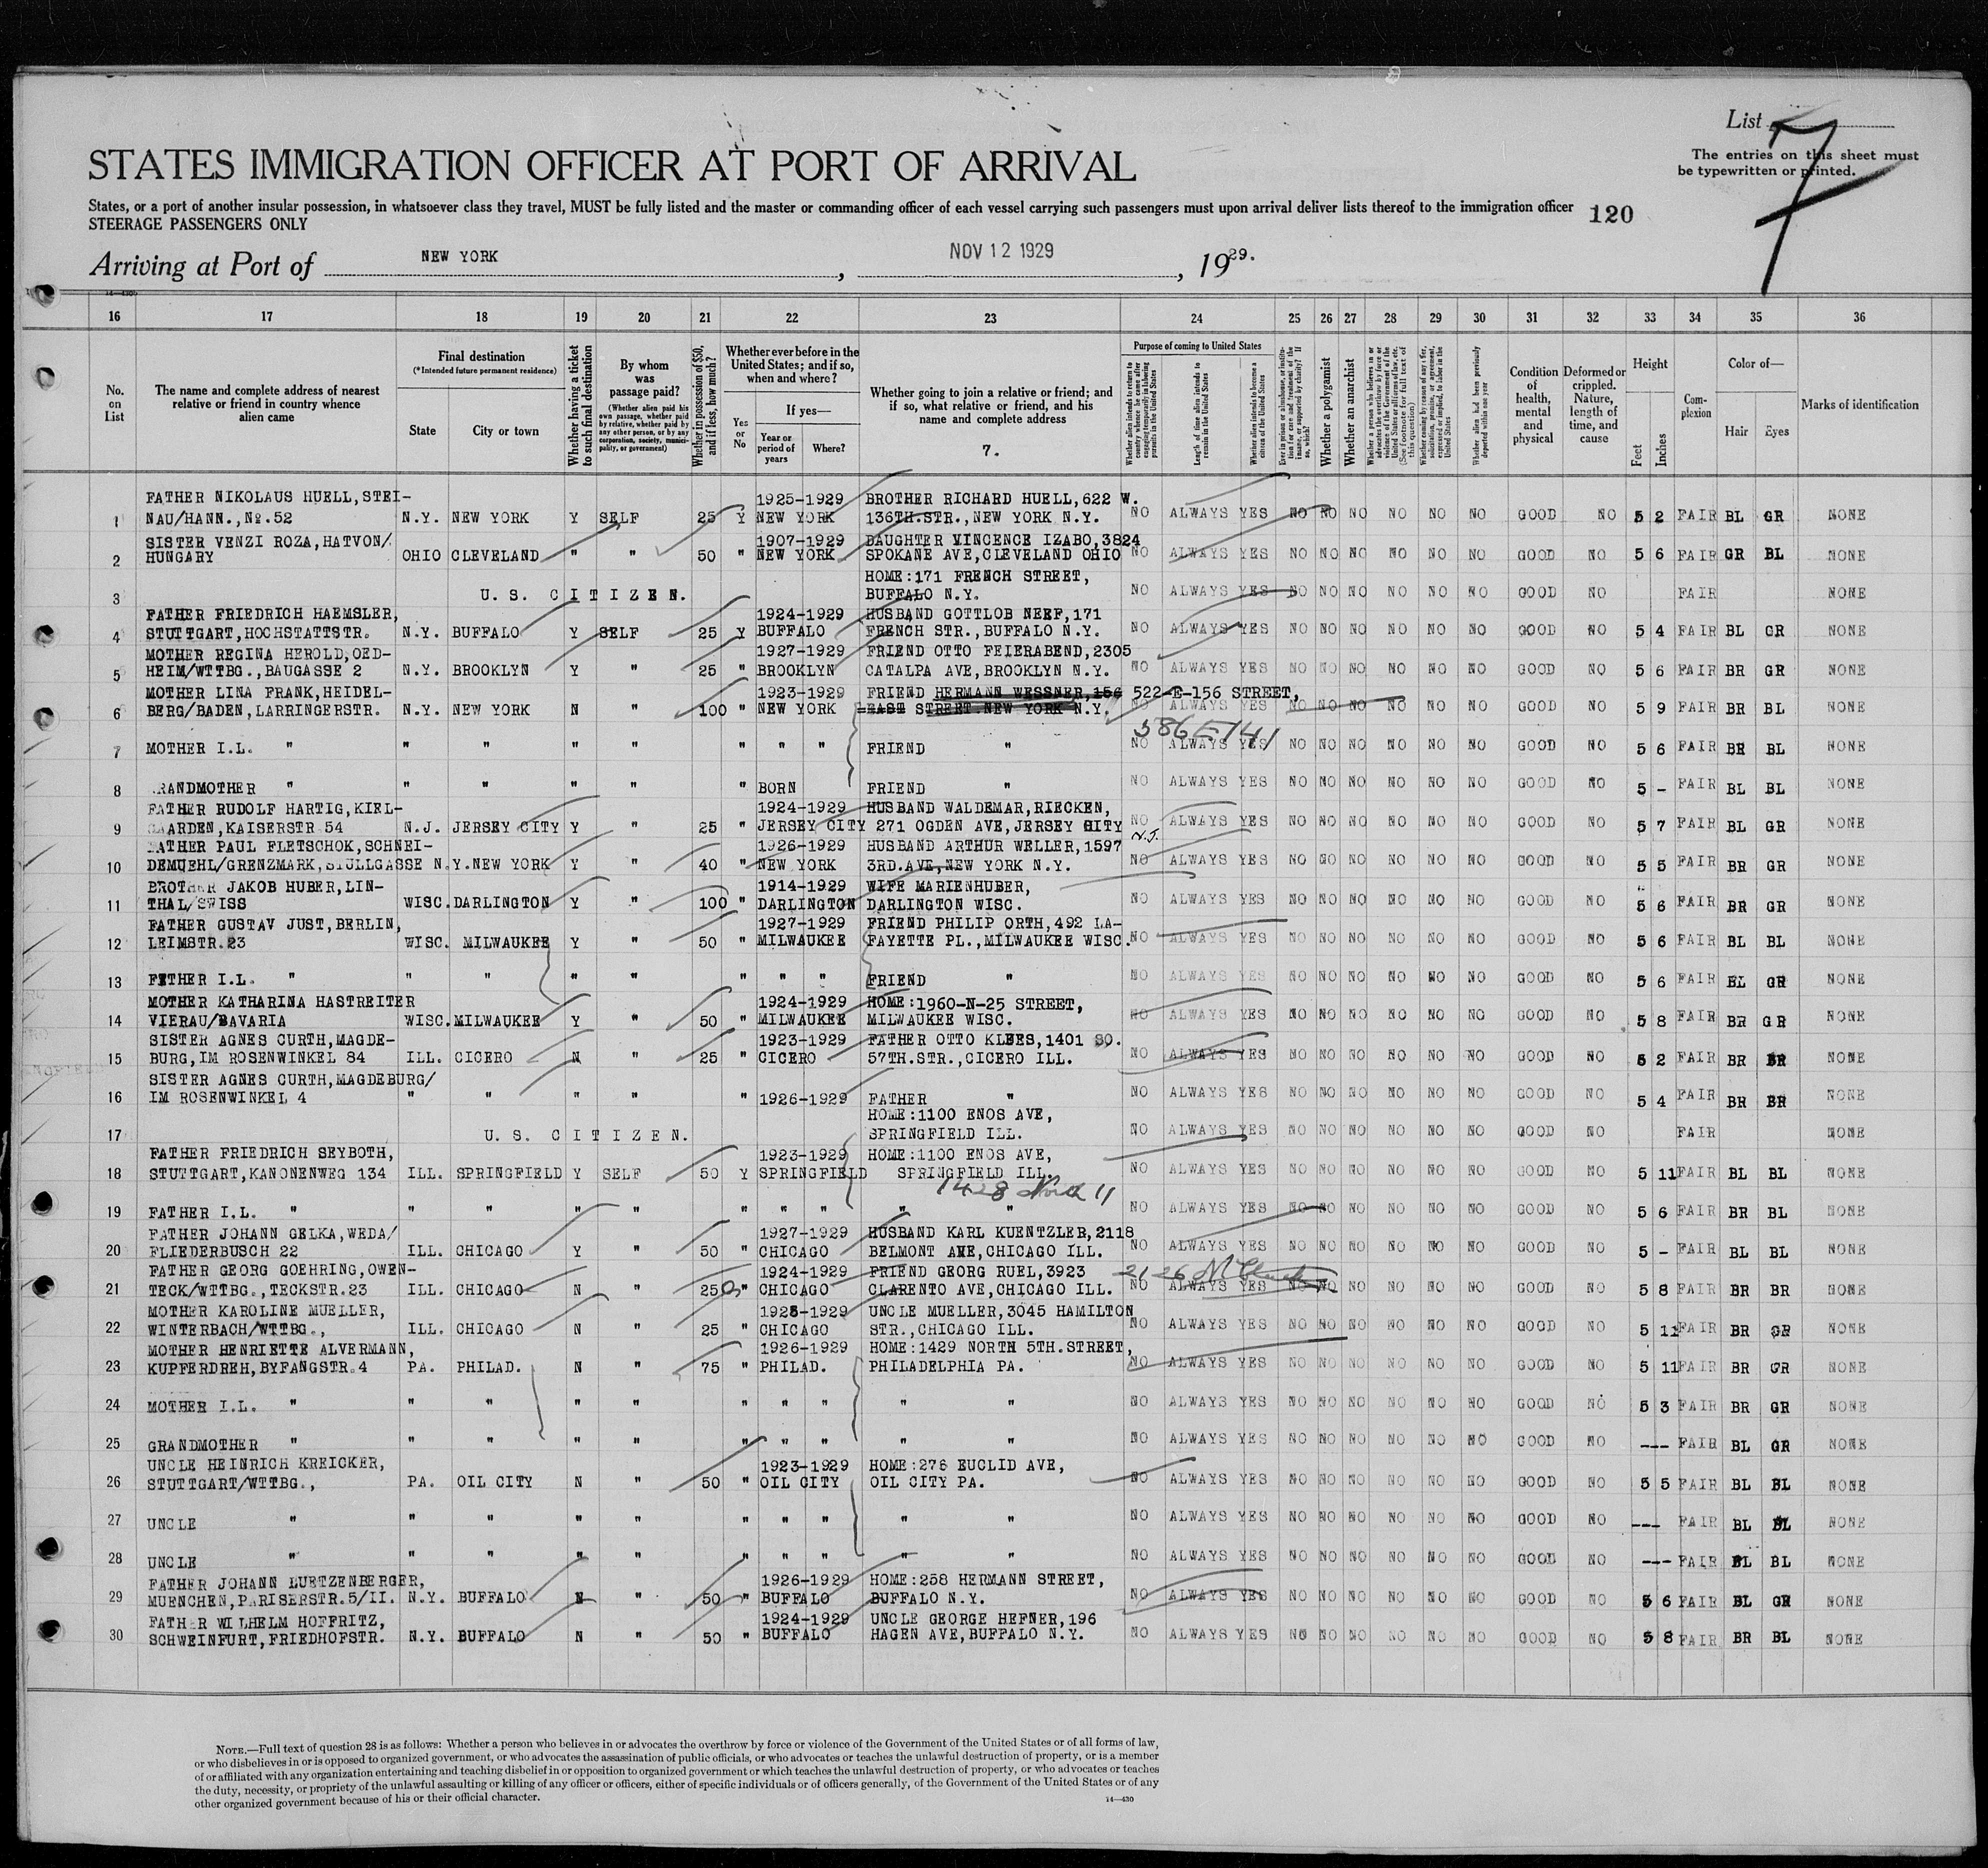 List 7
The entries on this sheet must
be typewritten or printed.
STATES IMMIGRATION OFFICER AT PORT OF ARRIVAL
States, or a port of another insular possession, in whatsoever class they travel, MUST be fully listed and the master or commanding officer of each vessel carrying such passengers must upon arrival deliver lists thereof to the immigration officer 120
STEERAGE PASSENGERS ONLY
Arriving at Port of NEW YORK, NOV 12 1929, 1929.
16 17 18 19 20 21 22 23 24 25 26 27 28 29 30 31 32 33 34 35 36
No. on List
The name and complete address of nearest relative or friend in country whence alien came
Final destination
(*Intended future permanent residence)
State City or town
Whether having a ticket to such final destination
By whom was passage paid?
(Whether alien paid his own passage, whether paid by relative, whether paid by any other person, or by any corporation, society, municipality, or government)
Whether in possession of $50, and if less, how much?
Whether ever before in the United States; and if so, when and where?
Yes or No
If yes—
Year or period of years Where?
Whether going to join a relative or friend; and if so, what relative or friend, and his name and complete address
7.
Purpose of coming to United States
Whether alien intends to return to country whence he came after engaging temporarily in laboring pursuits in the United States
Length of time alien intends to remain in the United States
Whether alien intends to become a citizen of the United States
Whether a polygamist
Whether an anarchist
Whether alien had been previously deported within one year
Condition of health, mental and physical
Deformed or crippled. Nature, length of time, and cause
Height Feet Inches
Complexion
Color of— Hair Eyes
Marks of identification
FATHER NIKOLAUS HUELL,STEI- 1925-1929 BROTHER RICHARD HUELL,622 W.
1 NAU/HANN.,No.52 N.Y. NEW YORK Y SELF 25 Y NEW YORK 136TH.STR.,NEW YORK N.Y. NO ALWAYS YES NO NO NO NO NO NO GOOD NO 5 2 FAIR BL GR NONE
SISTER VENZI ROZA,HATVON/ 1907-1929 DAUGHTER VINCENCE IZABO,3824
2 HUNGARY OHIO CLEVELAND " " 50 " NEW YORK SPOKANE AVE,CLEVELAND OHIO NO ALWAYS YES NO NO NO NO NO NO GOOD NO 5 6 FAIR GR BL NONE
HOME:171 FRENCH STREET,
3 U.S. CITIZEN. BUFFALO N.Y. NO ALWAYS YES NO NO NO NO NO NO GOOD NO FAIR NONE
FATHER FRIEDRICH HAEMSLER, 1924-1929 HUSBAND GOTTLOB NEEF,171
4 STUTTGART,HOCHSTATTSTR. N.Y. BUFFALO Y SELF 25 Y BUFFALO FRENCH STR.,BUFFALO N.Y. NO ALWAYS YES NO NO NO NO NO NO GOOD NO 5 4 FAIR BL GR NONE
MOTHER REGINA HEROLD,OED- 1927-1929 FRIEND OTTO FEIERABEND,2305
5 HEIM/WTTBG.,BAUGASSE 2 N.Y. BROOKLYN Y " 25 " BROOKLYN CATALPA AVE,BROOKLYN N.Y. NO ALWAYS YES NO NO NO NO NO NO GOOD NO 5 6 FAIR BR GR NONE
MOTHER LINA FRANK,HEIDEL- 1923-1929 FRIEND HERMANN WESSNER,156 522-E-156 STREET,
6 BERG/BADEN,LARRINGERSTR. N.Y. NEW YORK N " 100 " NEW YORK EAST STREET.NEW YORK N.Y. NO ALWAYS YES NO NO NO NO NO NO GOOD NO 5 9 FAIR BR BL NONE
586 E 141
7 MOTHER I.L. " " " " " " " " FRIEND " NO ALWAYS YES NO NO NO NO NO NO GOOD NO 5 6 FAIR BR BL NONE
8 RANDMOTHER " " " " " " BORN FRIEND " NO ALWAYS YES NO NO NO NO NO NO GOOD NO 5 - FAIR BL BL NONE
FATHER RUDOLF HARTIG,KIEL- 1924-1929 HUSBAND WALDEMAR,RIECKEN,
9 GAARDEN,KAISERSTR 54 N.J. JERSEY CITY Y " 25 " JERSEY CITY 271 OGDEN AVE,JERSEY CITY N.J. NO ALWAYS YES NO NO NO NO NO NO GOOD NO 5 7 FAIR BL GR NONE
FATHER PAUL FLETSCHOK,SCHNEI- 1926-1929 HUSBAND ARTHUR WELLER,1597
10 DEMUEHL/GRENZMARK, N.Y. NEW YORK Y " 40 " NEW YORK 3RD.AVE,NEW YORK N.Y. NO ALWAYS YES NO NO NO NO NO NO GOOD NO 5 5 FAIR BR GR NONE
BROTHER JAKOB HUBER,LIN- 1914-1929 WIFE MARIENHUBER,
11 THAL/SWISS WISC. DARLINGTON Y " 100 " DARLINGTON DARLINGTON WISC. NO ALWAYS YES NO NO NO NO NO NO GOOD NO 5 6 FAIR BR GR NONE
FATHER GUSTAV JUST,BERLIN, 1927-1929 FRIEND PHILIP ORTH,492 LA-
12 LEIMSTR.23 WISC. MILWAUKEE Y " 50 " MILWAUKEE FAYETTE PL.,MILWAUKEE WISC. NO ALWAYS YES NO NO NO NO NO NO GOOD NO 5 6 FAIR BL BL NONE
13 FATHER I.L. " " " " " " " " FRIEND " NO ALWAYS YES NO NO NO NO NO NO GOOD NO 5 6 FAIR BL GR NONE
MOTHER KATHARINA HASTREITER 1924-1929 HOME:1960-N-25 STREET,
14 VIERAU/BAVARIA WISC. MILWAUKEE Y " 50 " MILWAUKEE MILWAUKEE WISC. NO ALWAYS YES NO NO NO NO NO NO GOOD NO 5 8 FAIR BR GR NONE
SISTER AGNES CURTH,MAGDE- 1923-1929 FATHER OTTO KLEES,1401 SO.
15 BURG,IM ROSENWINKEL 84 ILL. CICERO N " 25 " CICERO 57TH.STR.,CICERO ILL. NO ALWAYS YES NO NO NO NO NO NO GOOD NO 5 2 FAIR BR BR NONE
SISTER AGNES CURTH,MAGDEBURG/
16 IM ROSENWINKEL 4 " " " " " 1926-1929 FATHER " NO ALWAYS YES NO NO NO NO NO NO GOOD NO 5 4 FAIR BR BR NONE
HOME:1100 ENOS AVE,
17 U.S. CITIZEN. SPRINGFIELD ILL. NO ALWAYS YES NO NO NO NO NO NO GOOD NO FAIR NONE
FATHER FRIEDRICH SEYBOTH, 1923-1929 HOME:1100 ENOS AVE,
18 STUTTGART,KANONENWEG 134 ILL. SPRINGFIELD Y SELF 50 Y SPRINGFIELD SPRINGFIELD ILL. NO ALWAYS YES NO NO NO NO NO NO GOOD NO 5 11 FAIR BL BL NONE
1428 North 11
19 FATHER I.L. " " " " " " " " " " NO ALWAYS YES NO NO NO NO NO NO GOOD NO 5 6 FAIR BR BL NONE
FATHER JOHANN GELKA,WEDA/ 1927-1929 HUSBAND KARL KUENTZLER,2118
20 FLIEDERBUSCH 22 ILL. CHICAGO Y " 50 " CHICAGO BELMONT AVE,CHICAGO ILL. NO ALWAYS YES NO NO NO NO NO NO GOOD NO 5 - FAIR BL BL NONE
FATHER GEORG GOEHRING,OWEN- 1924-1929 FRIEND GEORG RUEL,3923 2126
21 TECK/WTTBG.,TECKSTR.23 ILL. CHICAGO N " 250 " CHICAGO CLARENTO AVE,CHICAGO ILL. NO ALWAYS YES NO NO NO NO NO NO GOOD NO 5 8 FAIR BR BR NONE
MOTHER KAROLINE MUELLER, 1925-1929 UNCLE MUELLER,3045 HAMILTON
22 WINTERBACH/WTTBG., ILL. CHICAGO N " 25 " CHICAGO STR.,CHICAGO ILL. NO ALWAYS YES NO NO NO NO NO NO GOOD NO 5 11 FAIR BR GR NONE
MOTHER HENRIETTE ALVERMANN, 1926-1929 HOME:1429 NORTH 5TH.STREET,
23 KUPFERDREH,BYFANGSTR.4 PA. PHILAD. N " 75 " PHILAD. PHILADELPHIA PA. NO ALWAYS YES NO NO NO NO NO NO GOOD NO 5 11 FAIR BR GR NONE
24 MOTHER I.L. " " " " " " " " " " NO ALWAYS YES NO NO NO NO NO NO GOOD NO 5 3 FAIR BR GR NONE
25 GRANDMOTHER " " " " " " " " " " NO ALWAYS YES NO NO NO NO NO NO GOOD NO --- FAIR BL GR NONE
UNCLE HEINRICH KREICKER, 1923-1929 HOME:276 EUCLID AVE,
26 STUTTGART/WTTBG., PA. OIL CITY N " 50 " OIL CITY OIL CITY PA. NO ALWAYS YES NO NO NO NO NO NO GOOD NO 5 5 FAIR BL BL NONE
27 UNCLE " " " " " " " " " " NO ALWAYS YES NO NO NO NO NO NO GOOD NO --- FAIR BL BL NONE
28 UNCLE " " " " " " " " " " NO ALWAYS YES NO NO NO NO NO NO GOOD NO --- FAIR BL BL NONE
FATHER JOHANN LUETZENBERGER, 1926-1929 HOME:258 HERMANN STREET,
29 MUENCHEN,PARISERSTR.5/II. N.Y. BUFFALO N " 50 " BUFFALO BUFFALO N.Y. NO ALWAYS YES NO NO NO NO NO NO GOOD NO 5 6 FAIR BL GR NONE
FATHER WILHELM HOFFRITZ, 1924-1929 UNCLE GEORGE HEFNER,196
30 SCHWEINFURT,FRIEDHOFSTR. N.Y. BUFFALO N " 50 " BUFFALO HAGEN AVE,BUFFALO N.Y. NO ALWAYS YES NO NO NO NO NO NO GOOD NO 5 8 FAIR BR BL NONE
NOTE.—Full text of question 28 is as follows: Whether a person who believes in or advocates the overthrow by force or violence of the Government of the United States or of all forms of law,
or who disbelieves in or is opposed to organized government, or who advocates the assassination of public officials, or who advocates or teaches the unlawful destruction of property, or is a member
of or affiliated with any organization entertaining and teaching disbelief in or opposition to organized government or which teaches the unlawful destruction of property, or who advocates or teaches
the duty, necessity, or propriety of the unlawful assaulting or killing of any officer or officers, either of specific individuals or of officers generally, of the Government of the United States or of any
other organized government because of his or their official character.
14—430